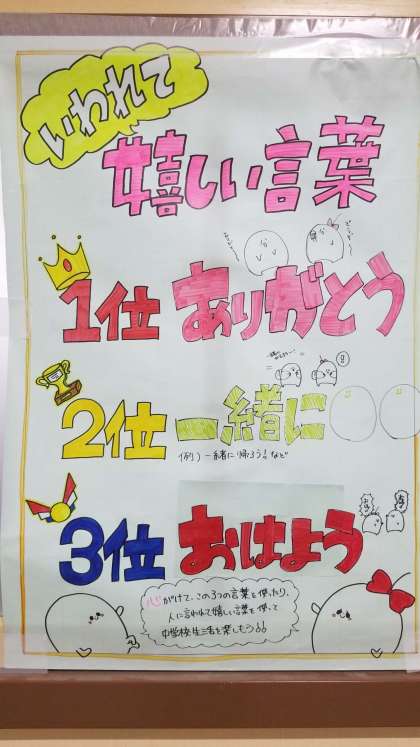 いわれて
嬉しい言葉
1位 ありがとう
2位 一緒に○○
(例) 一緒に帰ろう! など
3位 おはよう
心がけて、この3つの言葉を使ったり、
人に言われて嬉しい言葉を使って
中学校生活を楽しもう!!